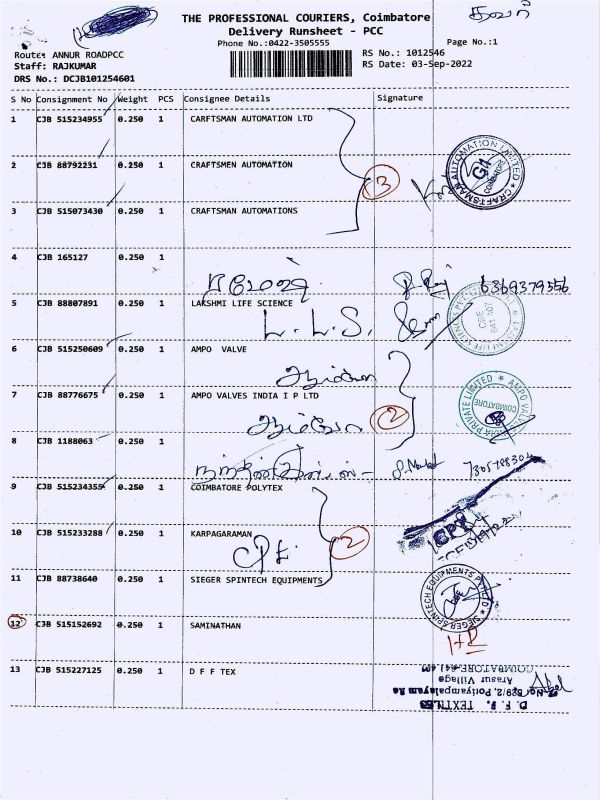 தவசி
THE PROFESSIONAL COURIERS, Coimbatore
Delivery Runsheet - PCC
Phone No.:0422-3505555
Page No.:1
Route: ANNUR ROADPCC
RS No.: 1012546
Staff: RAJKUMAR
RS Date: 03-Sep-2022
DRS No.: DCJB101254601
S No Consignment No Weight PCS Consignee Details Signature
1 CJB 515234955 0.250 1 CARFTSMAN AUTOMATION LTD
2 CJB 88792231 0.250 1 CRAFTSMEN AUTOMATION
3
CRAFTSMAN AUTOMATION LIMITED
COIMBATORE
3 CJB 515073430 0.250 1 CRAFTSMAN AUTOMATIONS
4 CJB 165127 0.250 1
6369379556
5 CJB 88807891 0.250 1 LAKSHMI LIFE SCIENCE
L. L. S.
6 CJB 515250609 0.250 1 AMPO VALVE
7 CJB 88776675 0.250 1 AMPO VALVES INDIA I P LTD
2
PRIVATE LIMITED
COIMBATORE
8 CJB 1188063 0.250 1
9 CJB 515234355 0.250 1 COIMBATORE POLYTEX
10 CJB 515233288 0.250 1 KARPAGARAMAN
2
CPT
11 CJB 88738640 0.250 1 SIEGER SPINTECH EQUIPMENTS
SIEGER SPINTECH EQUIPMENTS PVT LTD
12 CJB 515152692 0.250 1 SAMINATHAN
13 CJB 515227125 0.250 1 D F F TEX
D. F. F. TEXTILES
Arasur Village